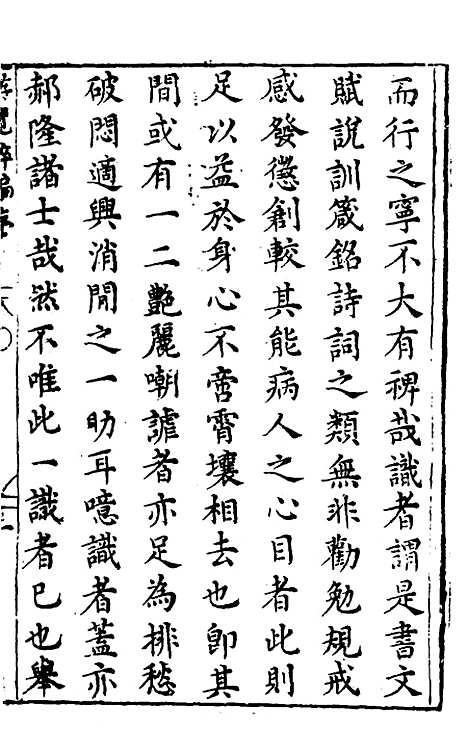 而行之寧不大有裨哉識者謂是書文
賦說訓箴銘詩詞之類無非勸勉規戒
感發懲創較其能病人之心目者此則
足以益於身心不啻霄壤相去也卽其
間或有一二艷麗嘲謔者亦足為排愁
破悶適興消閒之一助耳噫識者蓋亦
郝隆諸士哉然不唯此一識者已也舉